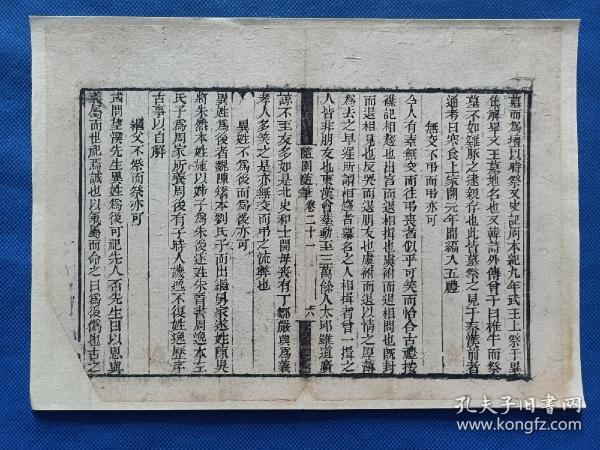 墓而爲壇以時祭又史記周本紀九年武王上祭于畢
註解畢文王墓地名也又韓詩外傳曾子曰椎牛而祭
墓不如雞豚之逮親存也此皆墓祭之見于秦漢前者
通考曰寒食上冢開元年間編入五禮
無交不弔而弔亦可
今人有素無交而往弔喪者似乎可笑而恰合古禮按
雜記相趨也出宮而退相揖也哀次而退相問也既封
而退相見也反哭而退朋友也虞祔而退以情之厚薄
爲去之早遲所謂相趨者慕名之人相揖者曾一揖之
人皆非朋友也東漢會葬動至三萬餘人太邱雖道廣
隨園隨筆 卷二十一 六
諒不至友多如是北史和士開母喪有丁鄒嚴興爲義
孝人多笑之是亦無交而弔之流弊也
異姓不爲後而爲後亦可
異姓爲後者魏陳矯本劉氏子而出繼舅家遂姓陳吳
將朱然本姓施以姊子爲朱後遂姓朱晉書周逸本左
氏子爲周家所養周後有子時人譏逸不復姓逸歷序
古事以自解
繼父不祭而祭亦可
或問望溪先生異姓爲後可祀先人否先生曰以恩與
義屬而世祀焉誠也以氣屬而命之曰爲後僞也古之
孔夫子旧书网